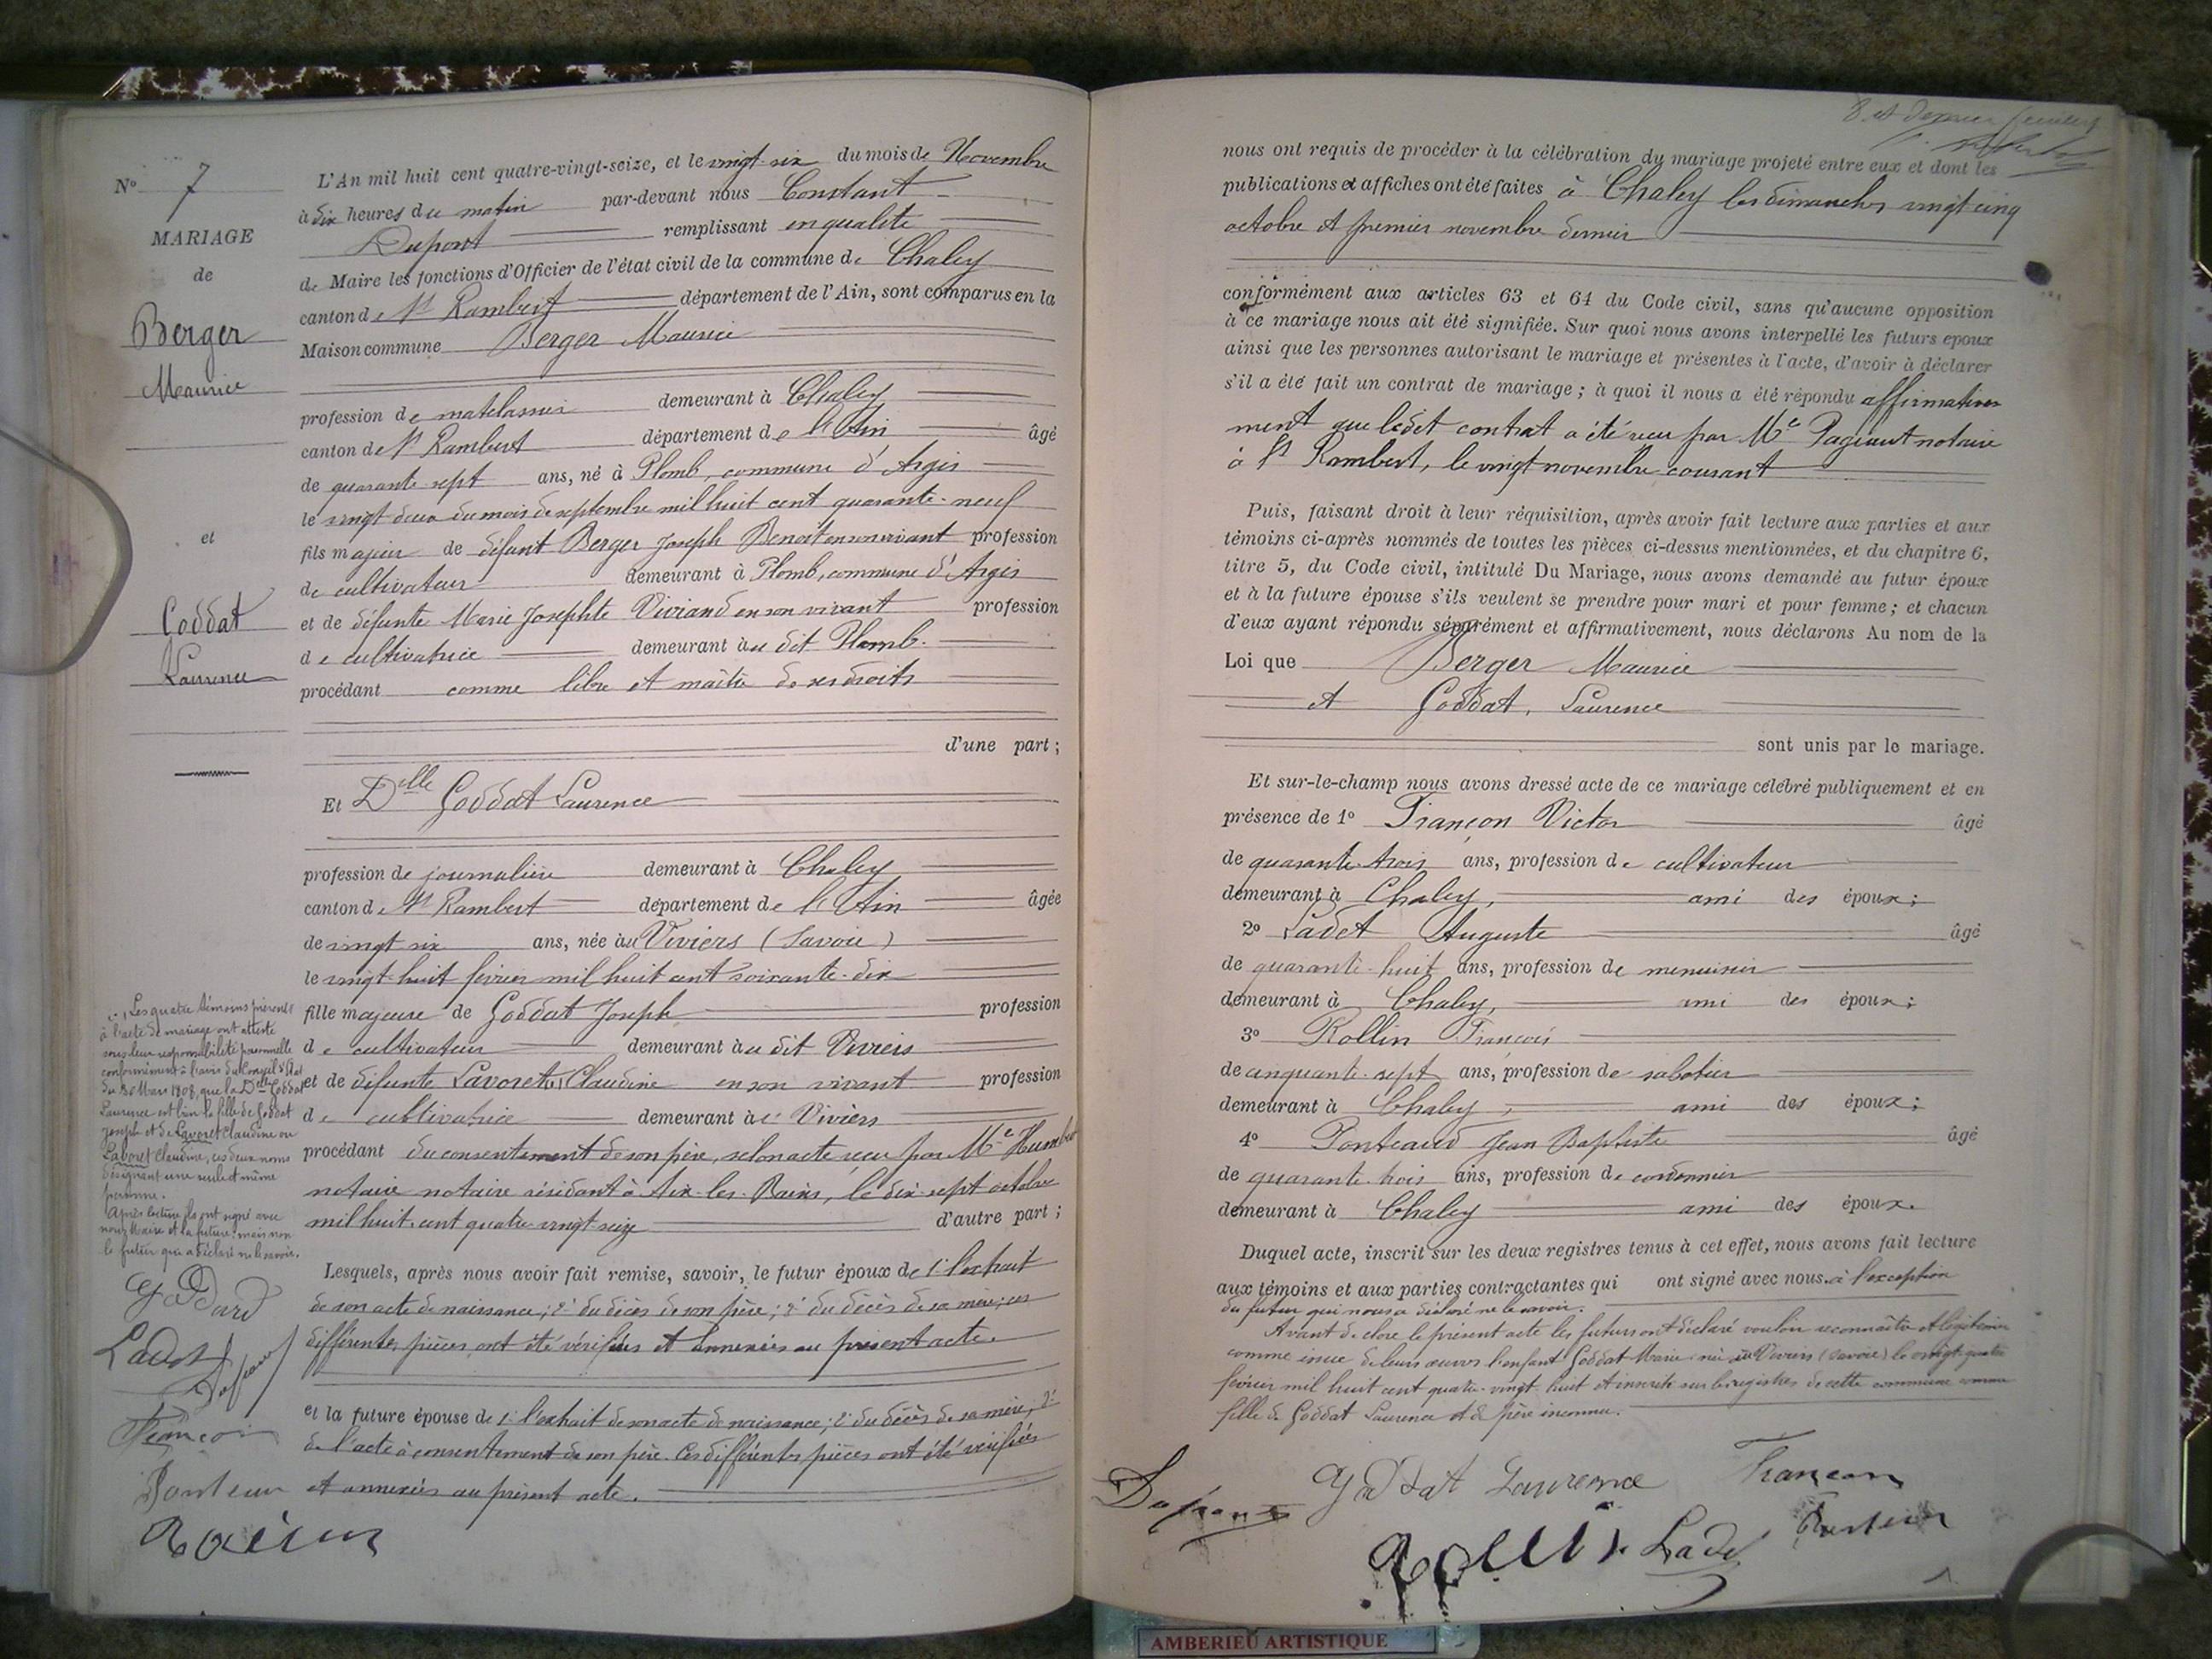 N° 7
MARIAGE
de
Berger
Maurice
et
Goddat
Laurence
L'An mil huit cent quatre-vingt-seize, et le vingt-six du mois de Novembre
à dix heures du matin par-devant nous Constant
Dupont remplissant en qualité
de Maire les fonctions d'Officier de l'état civil de la commune de Chaley
canton de St Rambert département de l'Ain, sont comparus en la
Maison commune Berger Maurice
profession de matelassier demeurant à Chaley
canton de St Rambert département de l'Ain âgé
de quarante-sept ans, né à Plomb, commune d'Argis
le vingt deux du mois de septembre mil huit cent quarante-neuf
fils majeur de défunt Berger Joseph Benoit en son vivant profession
de cultivateur demeurant à Plomb, commune d'Argis
et de défunte Marie Josephte Viviand en son vivant profession
de cultivatrice demeurant au dit Plomb.
procédant comme libre et maître de ses droits
d'une part ;
Et Delle Goddat Laurence
profession de journalière demeurant à Chaley
canton de St Rambert département de l'Ain âgée
de vingt six ans, née au Viviers (Savoie)
le vingt-huit février mil huit cent soixante-dix
fille majeure de Goddat Joseph profession
de cultivateur demeurant au dit Viviers
et de défunte Lavoret Claudine en son vivant profession
de cultivatrice demeurant à Viviers
procédant du consentement de son père, selon acte reçu par Me Humbert
notaire notaire résidant à Aix-les-Bains, le dix-sept octobre
mil huit cent quatre-vingt seize d'autre part ;
Lesquels, après nous avoir fait remise, savoir, le futur époux de 1° l'extrait
de son acte de naissance ; 2° du décès de son père ; 3° du décès de sa mère ; ces
différentes pièces ont été vérifiées et annexées au présent acte.
et la future épouse de 1° l'extrait de son acte de naissance ; 2° du décès de sa mère, 3°
de l'acte à consentement de son père. Ces différentes pièces ont été vérifiées
et annexées au présent acte.
Les quatre témoins présents
à l'acte de mariage ont attesté
sous leur responsabilité personnelle
conformément à l'avis du Conseil d'Etat
du 30 Mars 1808, que la Delle Goddat
Laurence est bien la fille de Goddat
Joseph et de Lavoret Claudine ou
Lavoret Claudine, ces deux noms
désignant une seule et même
personne.
Après lecture ils ont signé avec
nous Maire et la future, mais non
le futur qui a déclaré ne le savoir.
Ladet
Dupont
Françon
8 et dernier feuillet
nous ont requis de procéder à la célébration du mariage projeté entre eux et dont les
publications et affiches ont été faites à Chaley les dimanches vingt cinq
octobre et premier novembre dernier
conformément aux articles 63 et 64 du Code civil, sans qu'aucune opposition
à ce mariage nous ait été signifiée. Sur quoi nous avons interpellé les futurs epoux
ainsi que les personnes autorisant le mariage et présentes à l'acte, d'avoir à déclarer
s'il a été fait un contrat de mariage ; à quoi il nous a été répondu affirmative
ment que ledit contrat a été reçu par Me notaire
à St Rambert, le vingt novembre courant
Puis, faisant droit à leur réquisition, après avoir fait lecture aux parties et aux
témoins ci-après nommés de toutes les pièces ci-dessus mentionnées, et du chapitre 6,
titre 5, du Code civil, intitulé Du Mariage, nous avons demandé au futur époux
et à la future épouse s'ils veulent se prendre pour mari et pour femme ; et chacun
d'eux ayant répondu séparément et affirmativement, nous déclarons Au nom de la
Loi que Berger Maurice
et Goddat, Laurence
sont unis par le mariage.
Et sur-le-champ nous avons dressé acte de ce mariage célébré publiquement et en
présence de 1° Françon Victor âgé
de quarante-trois ans, profession de cultivateur
demeurant à Chaley, ami des époux ;
2° Ladet Auguste âgé
de quarante-huit ans, profession de menuisier
demeurant à Chaley, ami des époux ;
3° Rollin François
de cinquante-sept ans, profession de sabotier
demeurant à Chaley, ami des époux ;
4° Jean Baptiste âgé
de quarante-trois ans, profession de cordonnier
demeurant à Chaley ami des époux.
Duquel acte, inscrit sur les deux registres tenus à cet effet, nous avons fait lecture
aux témoins et aux parties contractantes qui ont signé avec nous à l'exception
du futur qui nous a déclaré ne le savoir.
Avant de clore le présent acte les futurs ont déclaré vouloir reconnaître et légitimer
comme issue de leurs œuvres l'enfant Goddat Marie née au Viviers (Savoie) le vingt-quatre
février mil huit cent quatre-vingt-huit et inscrite sur les registres de cette commune comme
fille de Goddat Laurence et de père inconnu.
Dupont Goddat Laurence Françon
Rollin Ladet
AMBERIEU ARTISTIQUE